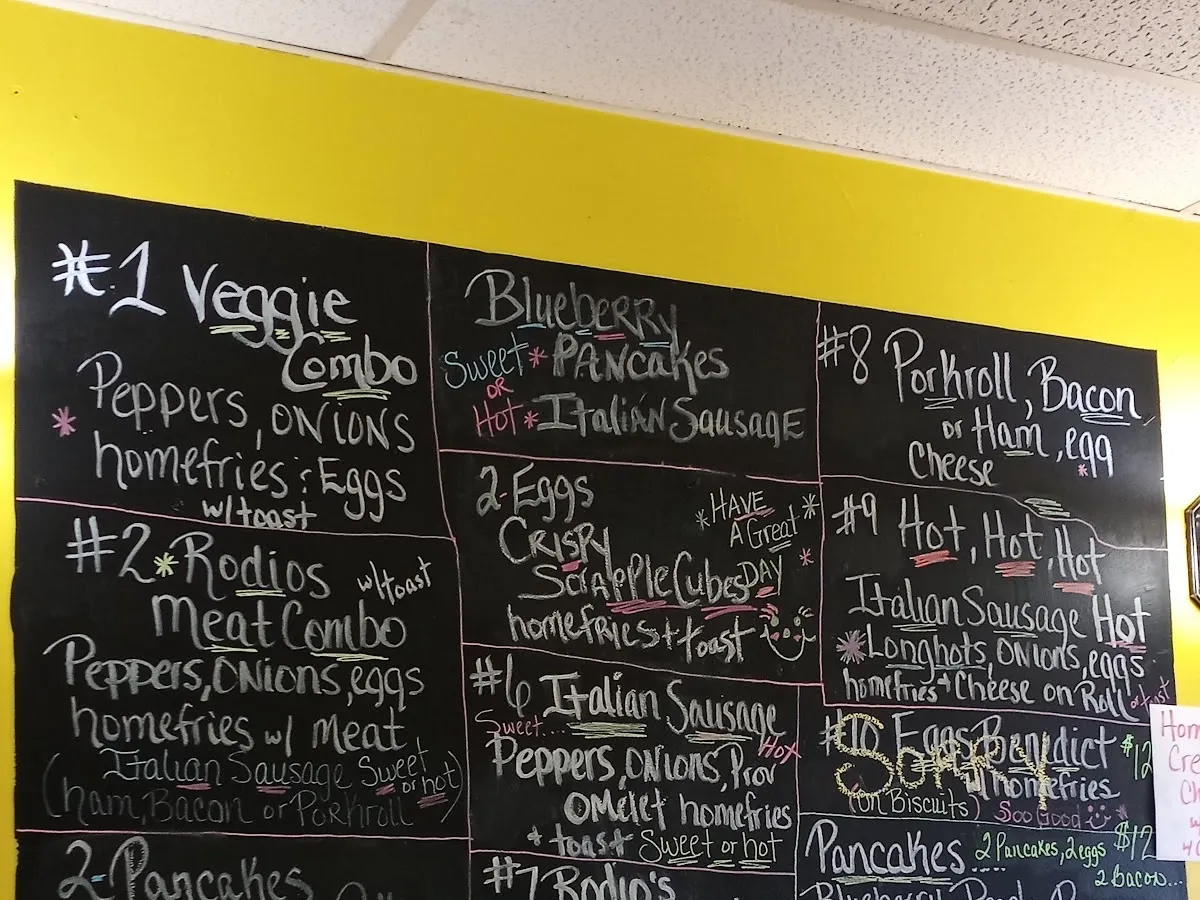 #1 Veggie
Combo
* Peppers, ONIONS
homefries : Eggs
w/toast
#2 * Rodios
w/toast
Meat Combo
Peppers, ONions, eggs
homefries w/ Meat
(Italian Sausage Sweet or hot)
(ham, Bacon or Porkroll
2-Pancakes
Blueberry
Sweet * PANcakes
OR
Hot * Italian Sausage
2-Eggs
Crispy
Scrapple Cubes
homefries + toast
* HAVE *
A Great
DAY *
#6 Italian Sausage
Sweet.... Hot
Peppers, ONions, Prov
OMelet homefries
+ toast Sweet or hot
#7 Rodio's
#8 Porkroll, Bacon,
or Ham, egg
Cheese *
#9 Hot, Hot, Hot
Italian Sausage Hot
* Longhots, ONions, eggs
homefries + Cheese on Roll
or toast
#10 Eggs Benedict $12
Sorry
homefries
(on Biscuits) Soo Good
Pancakes.... 2 Pancakes, 2 eggs $12
2 Bacon...
Blueberry
Hom
Cre
Ch
w